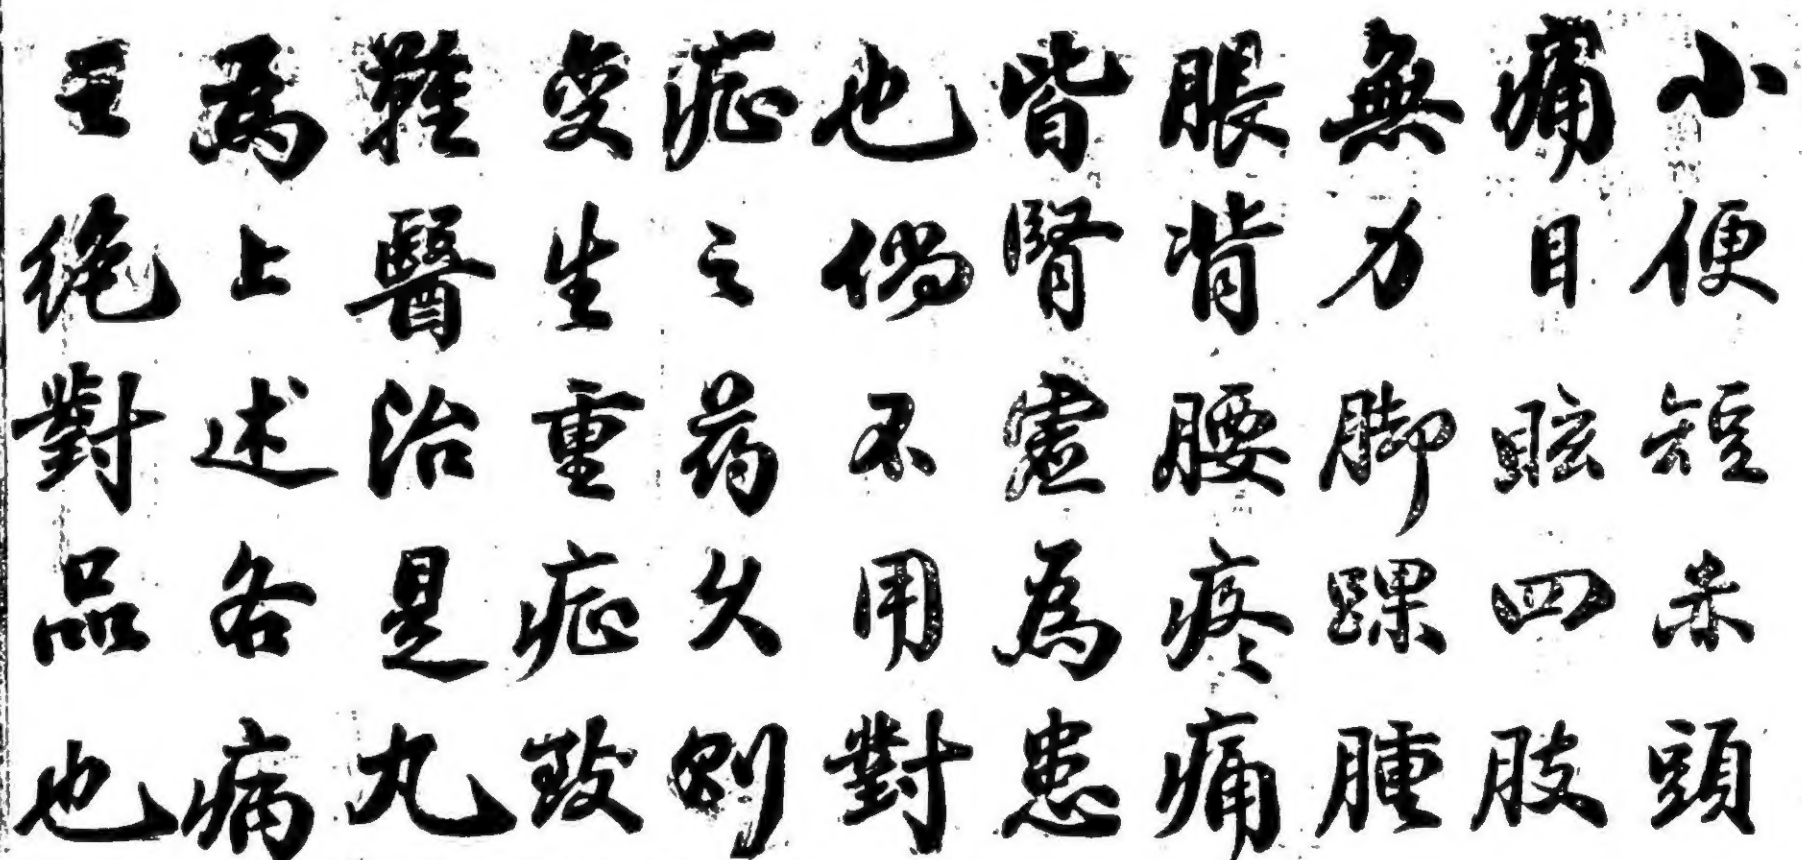 小便短赤頭
痛目眩四肢
無力脚踝腫
脹背腰疼痛
皆腎虛為患
也倘不用對
症之药久則
变生重症致
難醫治是丸
為上述各病
絶對品也